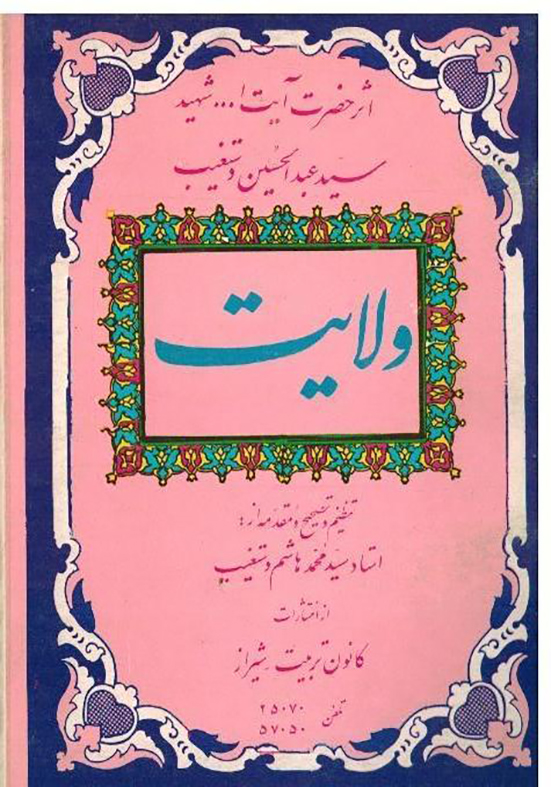 اثر حضرت آیت ا... شهید
سید عبدالحسین دستغیب
ولایت
تنظیم و تصحیح و مقدمه از:
استاد سید محمد هاشم دستغیب
از انتشارات
کانون تربیت شیراز
تلفن ۲۵۰۷۰
۵۷۰۵۰